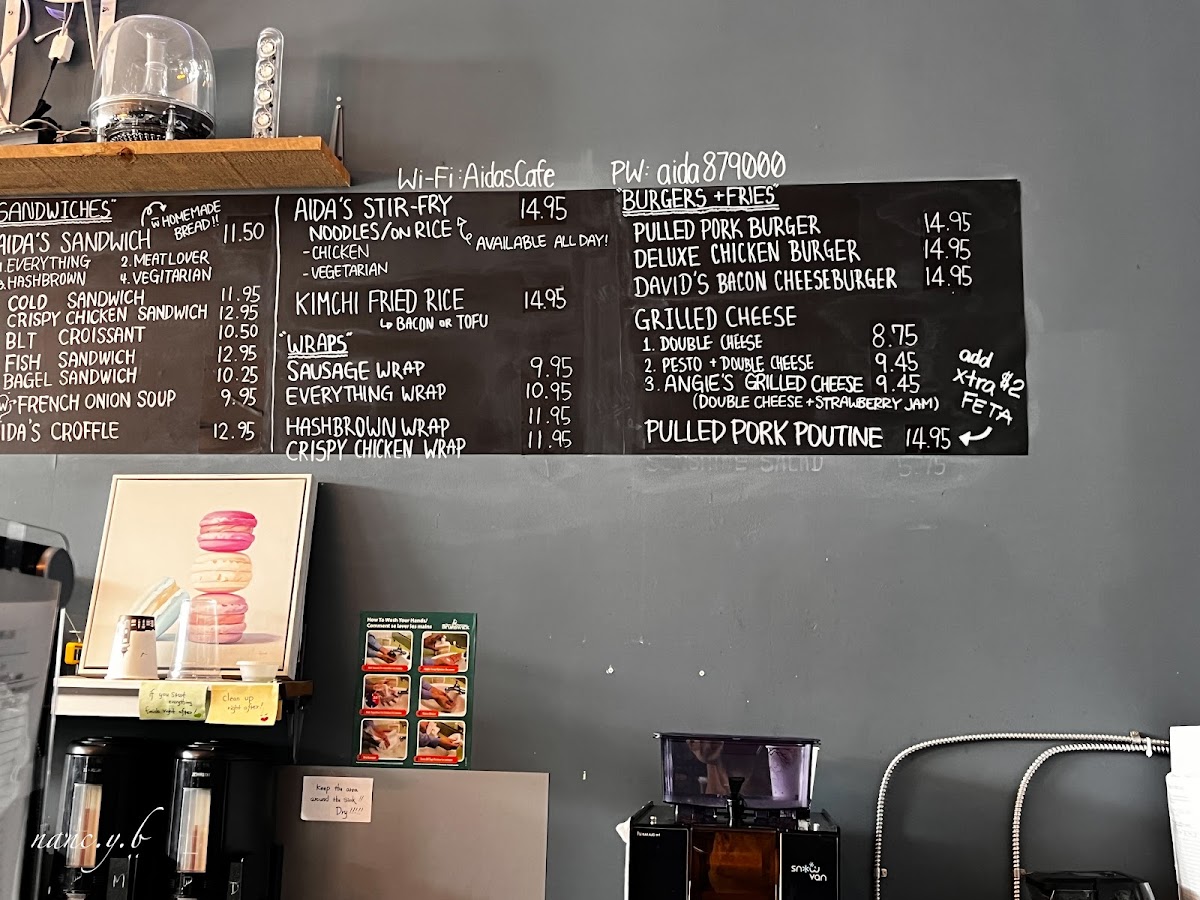 Wi-Fi: AidasCafe PW: aida879000
SANDWICHES"
w HOMEMADE
BREAD!!
AIDA'S SANDWICH 11.50
1. EVERYTHING 2. MEATLOVER
3. HASHBROWN 4. VEGITARIAN
COLD SANDWICH 11.95
CRISPY CHICKEN SANDWICH 12.95
BLT CROISSANT 10.50
FISH SANDWICH 12.95
BAGEL SANDWICH 10.25
FRENCH ONION SOUP 9.95
IDA'S CROFFLE 12.95
AIDA'S STIR-FRY 14.95
NOODLES/ON RICE
AVAILABLE ALL DAY!
- CHICKEN
- VEGETARIAN
KIMCHI FRIED RICE 14.95
BACON OR TOFU
"WRAPS"
SAUSAGE WRAP 9.95
EVERYTHING WRAP 10.95
HASHBROWN WRAP 11.95
CRISPY CHICKEN WRAP 11.95
"BURGERS + FRIES"
PULLED PORK BURGER 14.95
DELUXE CHICKEN BURGER 14.95
DAVID'S BACON CHEESEBURGER 14.95
GRILLED CHEESE
1. DOUBLE CHEESE 8.75
2. PESTO + DOUBLE CHEESE 9.45
3. ANGIE'S GRILLED CHEESE 9.45
(DOUBLE CHEESE + STRAWBERRY JAM)
add
xtra $2
FETA
PULLED PORK POUTINE 14.95
How To Wash Your Hands/
Comment se laver les mains
Brunswick
if you start
everything
finish right after!
clean up
right after!
Keep the area
around the sink!!
Dry!!!!
nanc.y.b
M
D
snow
van